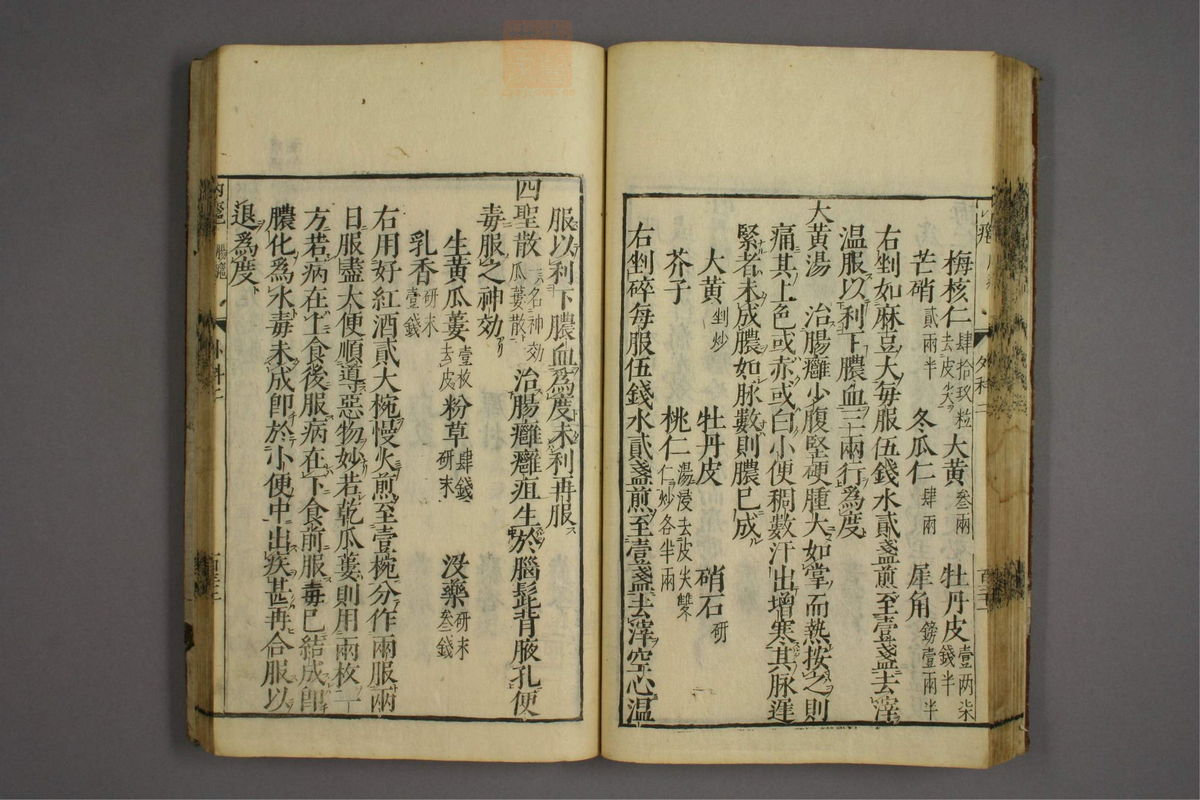 梅核仁肆拾玖粒去皮尖大黃叁兩牡丹皮壹两柒錢半
芒硝貳兩半冬瓜仁肆兩犀角鎊壹兩半
右剉如麻豆大每服伍錢水貳盞煎至壹盞去滓
溫服以利下膿血三兩行爲度
大黃湯治腸癰少腹堅硬腫大如掌而熱按之則
痛其上色或赤或白小便稠數汗出增寒其脉遲
緊者未成膿如脉數則膿已成
大黃剉炒牡丹皮硝石研
芥子桃仁湯浸去皮尖雙仁炒各半兩
右剉碎每服伍錢水貳盞煎至壹盞去滓空心溫
服以利下膿血爲度未利再服
四聖散一名神効瓜蔞散治腸癰癰疽生於腦髭背腋乳便
毒服之神効
生黃瓜蔞壹枚去皮粉草肆錢研末没藥研末叁錢
乳香研末壹錢
右用好紅酒貳大椀慢火煎至壹椀分作兩服兩
日服盡大便順導惡物妙若乾瓜蔞則用兩枚一
方若病在上食後服病在下食前服毒已結成卽
膿化爲水毒未成卽於小便中出疾甚再合服以
退爲度
内癰 腸癰 外科二